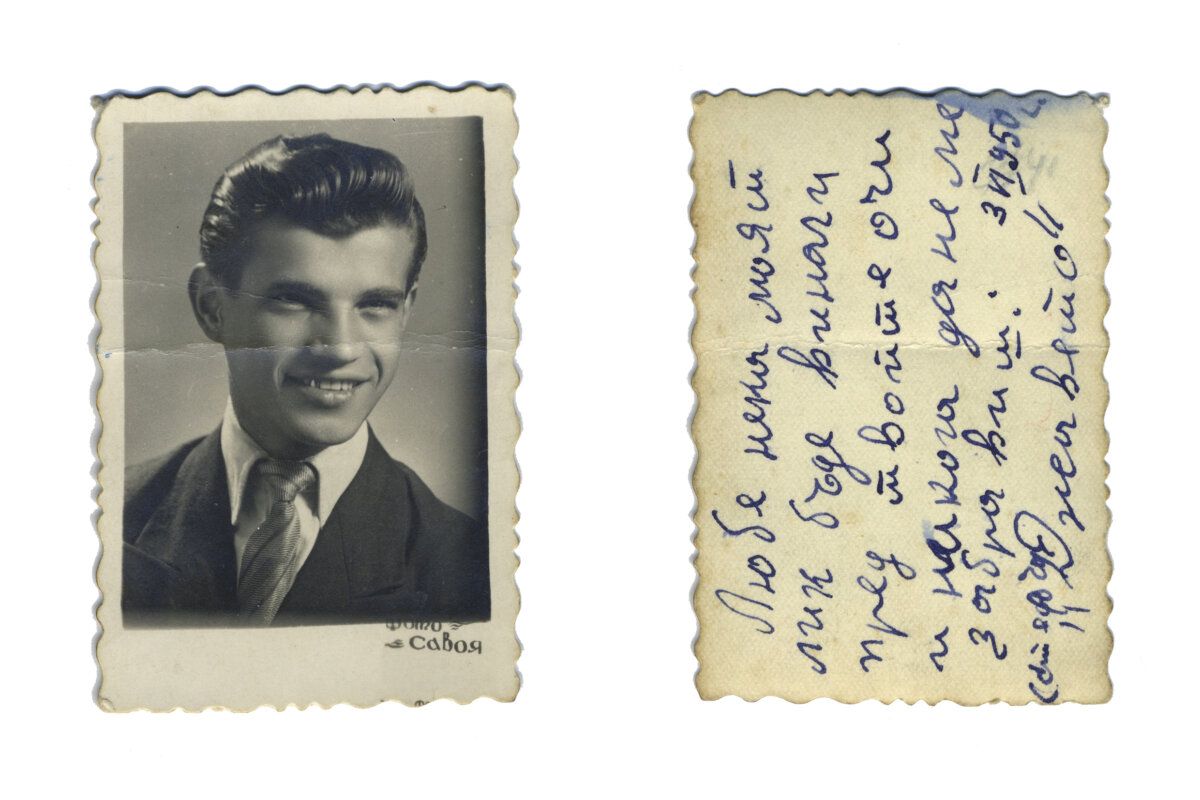 Фото
Савоя
Любе нека моят
лик бъде винаги
пред твойте очи
и никога да не ме
забравиш:
3 VI 950 г.